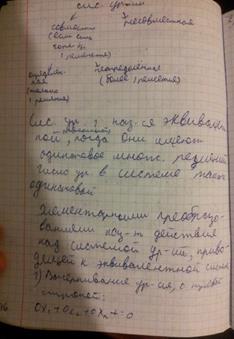 сис. ур-ний
совместн
несовместная
(если есть
хотя бы
1 решение)
определён-
ная
неопределённая
(только
1 решение)
(более 1 решения)
Сис. ур. наз-ся эквивалент-
ной, когда они имеют
одинаковое множ. решений
число ур. в системе также
одинаковой
Элементарными преобразо-
ваниями наз-т действия
над системой ур-ий, приво-
дящей к эквивалентной системе
1) Вычёркивание ур-ия, с нулевой
строкой:
0x₁+0x₂+0xₙ+=0